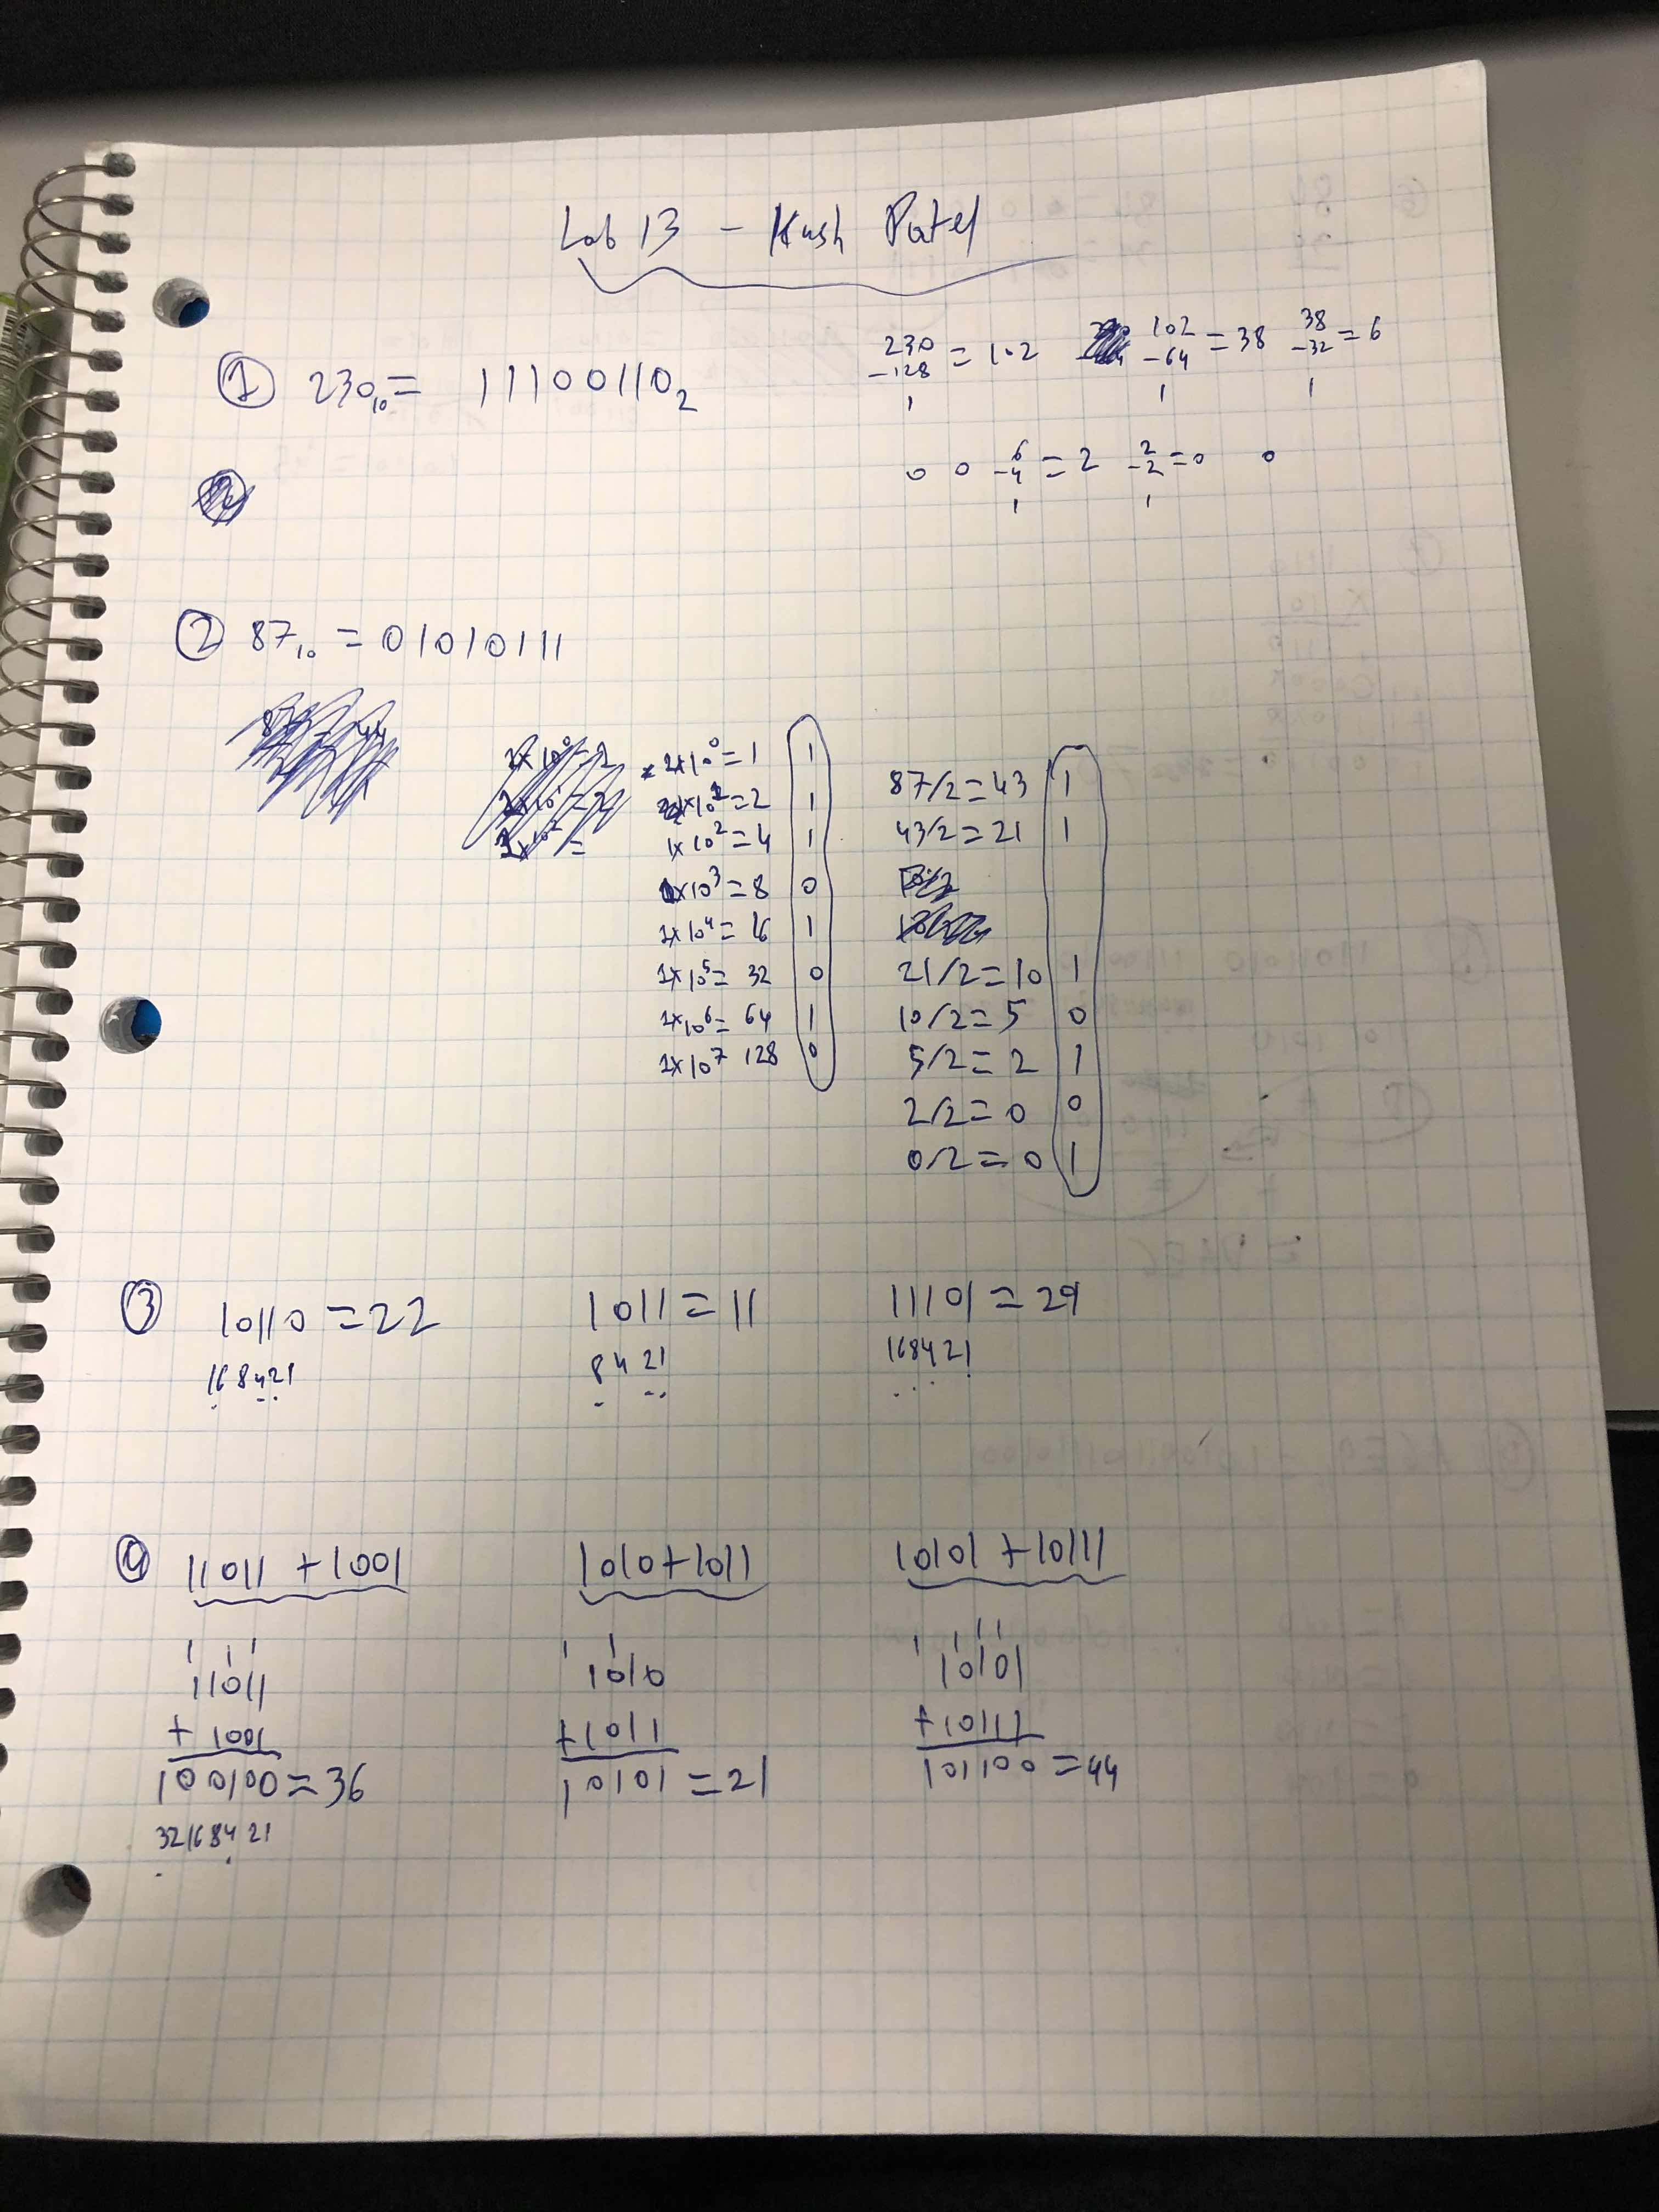 Lab 13 - Kush Patel
① 230₁₀ = 11100110₂
230 -128 = 102 102 -64 = 38 38 -32 = 6
1 1 1
0 0 6 -4 = 2 2 -2 = 0 0
1 1
② 87₁₀ = 01010111
2x10⁰ = 1 1
2x10¹ = 2 1
1x10² = 4 1
1x10³ = 8 0
1x10⁴ = 16 1
1x10⁵ = 32 0
1x10⁶ = 64 1
1x10⁷ 128 0
87/2 = 43 1
43/2 = 21 1
21/2 = 10 1
10/2 = 5 0
5/2 = 2 1
2/2 = 0 0
0/2 = 0 1
③ 10110 = 22 1011 = 11 11101 = 29
168421 8 4 21 168421
④ 11011 + 1001 1010 + 1011 10101 + 10111
1 1 1 1 1 1 1 1 1
11011 1010 10101
+ 1001 +1011 +10111
100100 = 36 10101 = 21 101100 = 44
32168421